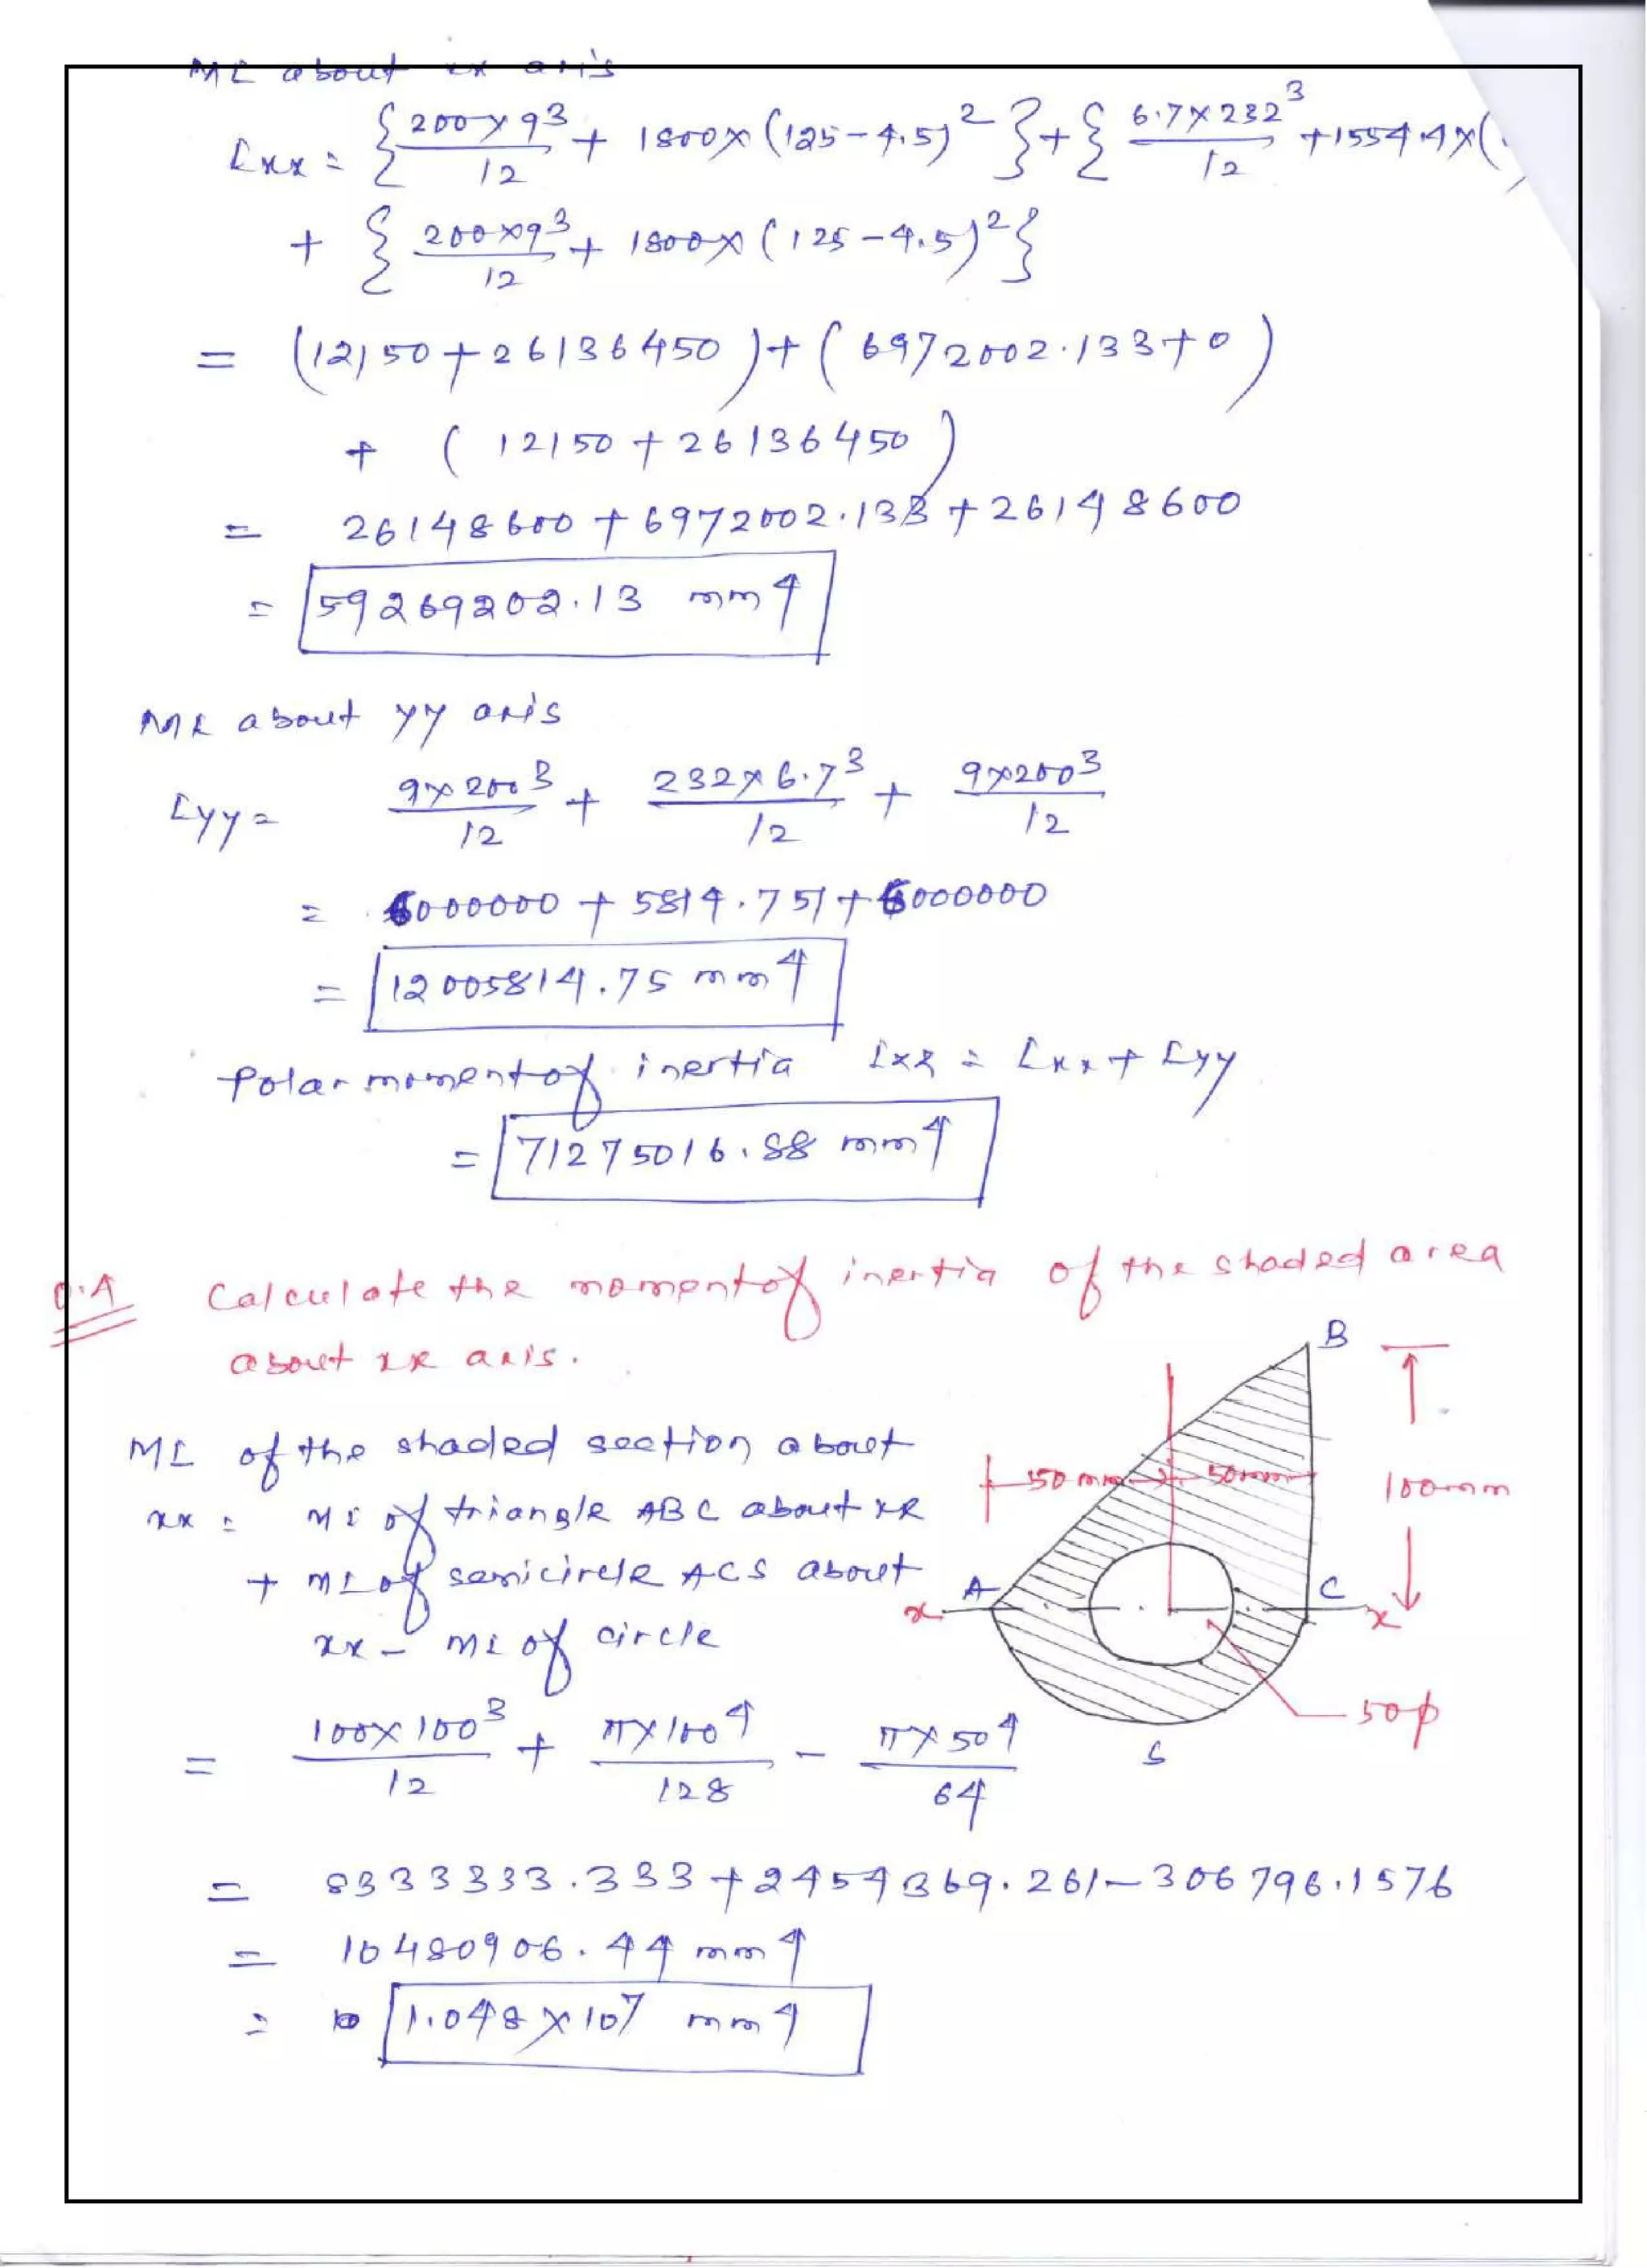 MI about xx axis
Ixx = {200×9³/12 + 1800×(125-4.5)²} + {6.7×232³/12 + 1554.4×(
+ {200×9³/12 + 1800×(125-4.5)²}
= (12150+26136450)+(6972002.133+0)
+ (12150+26136450)
= 26148600+6972002.133+26148600
= 59269202.13 mm4
MI about yy axis
Iyy = 9×200³/12 + 232×6.7³/12 + 9×200³/12
= 6000000 + 5814.751 + 6000000
= 12005814.75 mm4
Polar moment of inertia Izz = Ixx + Iyy
= 71275016.88 mm4
Q.4 Calculate the moment of inertia of the shaded area
about xx axis.
B
MI of the shaded section about
50 mm 50mm 100mm
xx = MI of triangle ABC about xx
+ MI of semicircle ACS about
A C
x x
xx - MI of circle
50φ
S
= 100×100³/12 + π×100⁴/128 - π×50⁴/64
= 8333333.333+2454369.261-306796.1576
= 10480906.44 mm4
= 1.048×10⁷ mm4